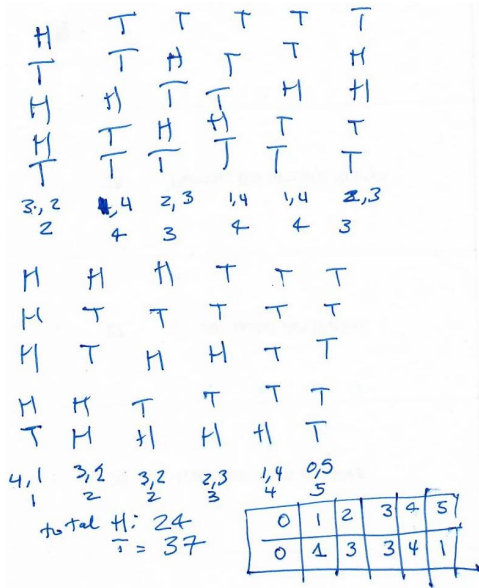 H T T T T T
T T H T T H
H H T T H H
H T H H T T
T T T T T T
3,2 1,4 2,3 1,4 1,4 2,3
2 4 3 4 4 3
H H H T T T
H T T T T T
H T H H T T
H H T T T T
T H H H H T
4,1 3,2 3,2 2,3 1,4 0,5
1 2 2 3 4 5
total H: 24
T = 37
0 1 2 3 4 5
0 1 3 3 4 1